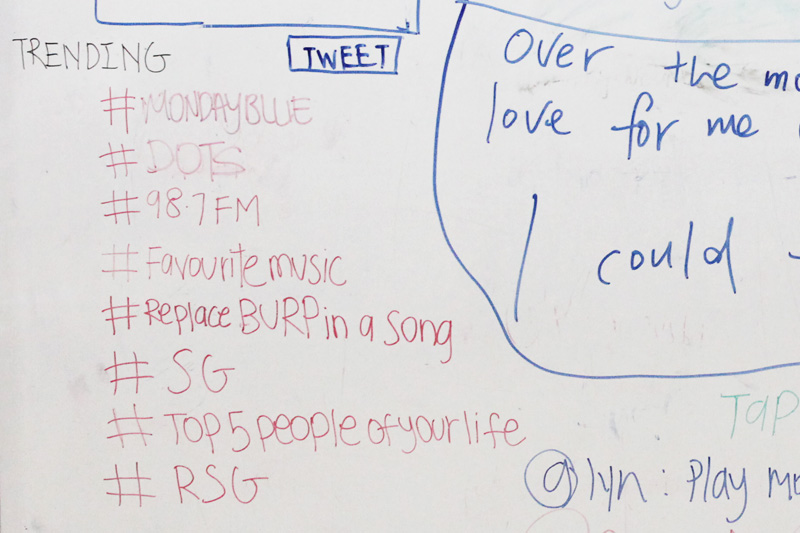 TRENDING
TWEET
#MONDAYBLUE
#DOTS
#98.7FM
#Favouritemusic
#Replace BURP in a song
#SG
#TOP 5 people of your life
#RSG
Over the
love for me
could
TAP
@lyn: Play